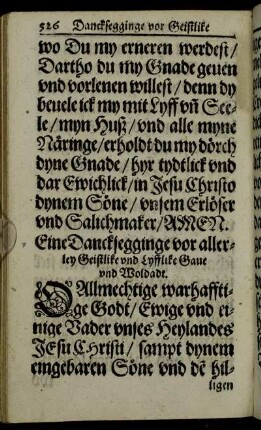 526 Dancksegginge vor Geistlike
wo Du my erneren werdest/
Dartho du my Gnade geuen
vnd vorlenen willest/ denn dy
beuele ick my mit Lyff vn̄ See-
le/ myn Huß/ vnd alle myne
Näringe/ erholdt du my dörch
dyne Gnade/ hyr tydtlick vnd
dar Ewichlick/ in Jesu Christo
dynem Söne/ vnsem Erlöser
vnd Salichmaker/ AMEN.
Eine Dancksegginge vor aller-
ley Geistlike vnd Lyfflike Gaue
vnd Woldadt.
O Allmechtige warhaffti-
ge Godt/ Ewige vnd ei-
nige Vader vnses Heylandes
JEsu CHristi/ sampt dynem
eingebaren Söne vnd dē hil-
ligen